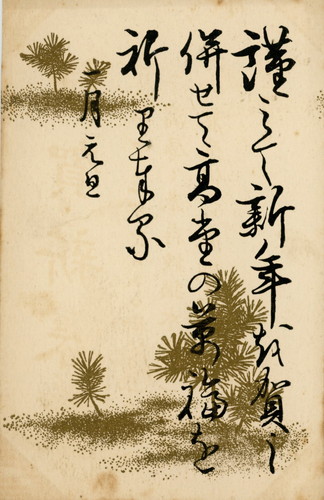 謹みて新年を賀し
併せて高堂の万福を
祈り奉る
一月元旦